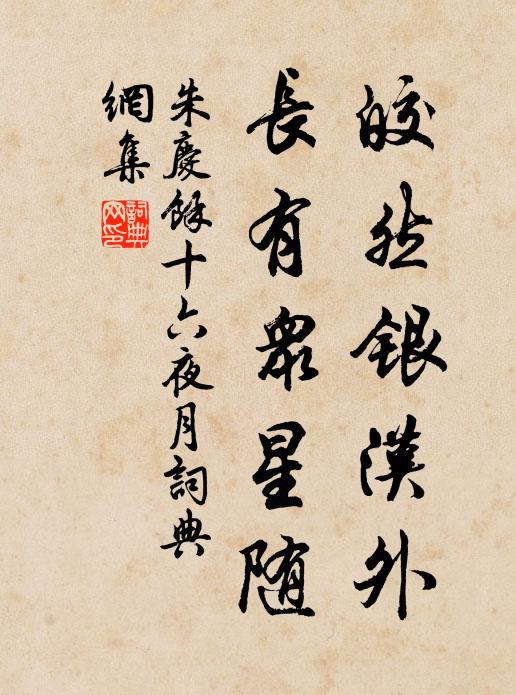 皎然銀漢外
長有眾星隨
朱慶餘十六夜月詞典
網集
詞典網印